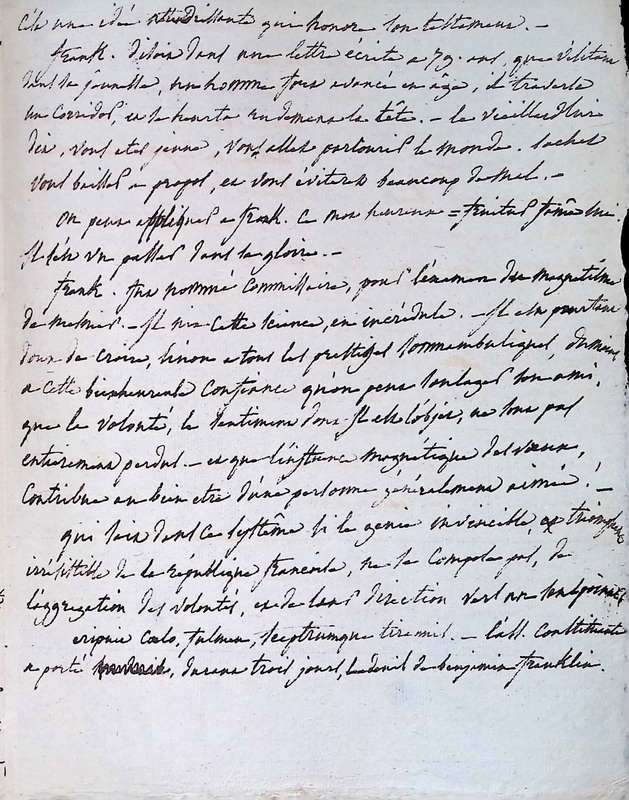 C'est une idée attendrissante qui honore son testament. –
frank. disoit dans une lettre écrite a 79. ans, que visitant
dans sa jeunesse, un homme fort avancé en âge, il traversa
un corridor, et se heurta rudement la tête. – le vieillard lui
dit, vous etes jeune, vous allez parcourir le monde. sachez
vous baisser a propos, et vous éviterez beaucoup de mal. –
On peut appliquer a frank. ce mot heureux =
Il s'est vu passer dans la gloire. –
frank. fut nommé Commissaire, pour l'examen du magnétisme
de mesmer. – Il nia cette science, en incrédule. – Il est pourtant
doux de croire, sinon a tous les prestiges somnambuliques, du moins
a cette bienheureuse confiance qu'on peut soulager son ami,
que la volonté, le sentiment dont Il est l'objet, ne sont pas
entierement perdus. – et que l'influence magnétique des vœux,
Contribue au bien etre d'une personne généralement aimée! –
qui sait dans ce systême si le genie invincible, et triomphe
irrésistible de la république françoise, ne se compose pas, de
l'aggregation des volontés, et de leur direction vers un seul point
eripuit Cœlo, fulmen, sceptrumque tirannis. – L'ass. Constituante
a porté, durant trois jours, le deuil de benjamin franklin.